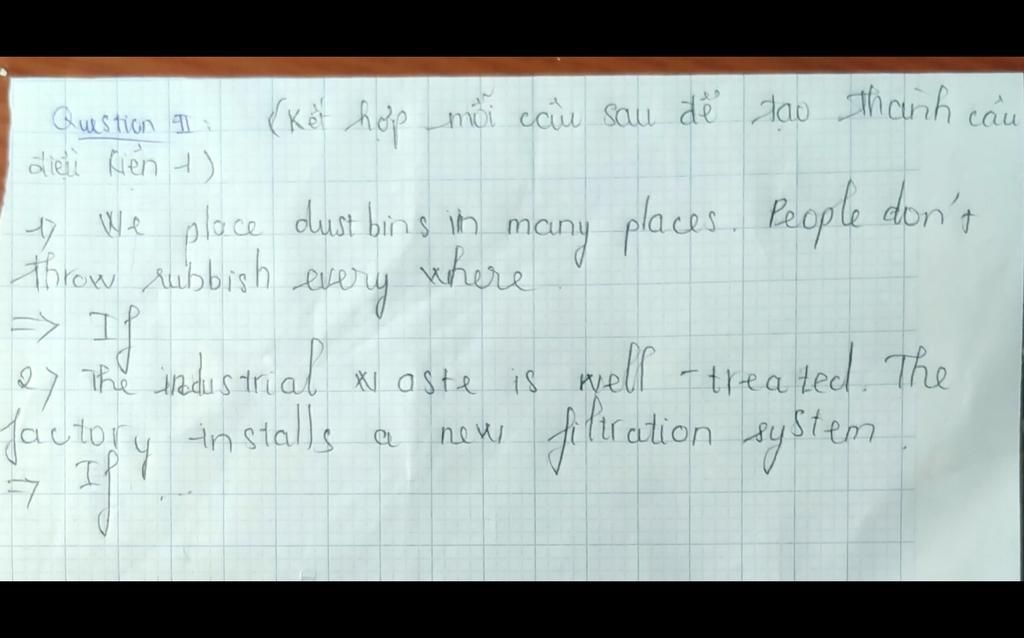 Question II: (Kết hợp mỗi câu sau để tạo thành câu
điều kiện 1)
1) We place dustbins in many places. People don't
throw rubbish every where
=> If
2) The industrial waste is well-treated. The
factory installs a new filtration system.
=> If ...